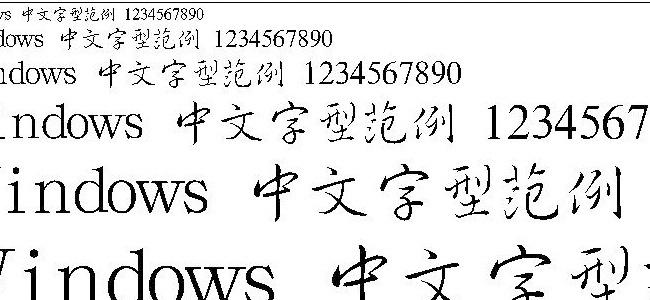 ws 中文字型范例 1234567890
dows 中文字型范例 1234567890
ndows 中文字型范例 1234567890
indows 中文字型范例 1234567
Windows 中文字型范例
Windows 中文字型